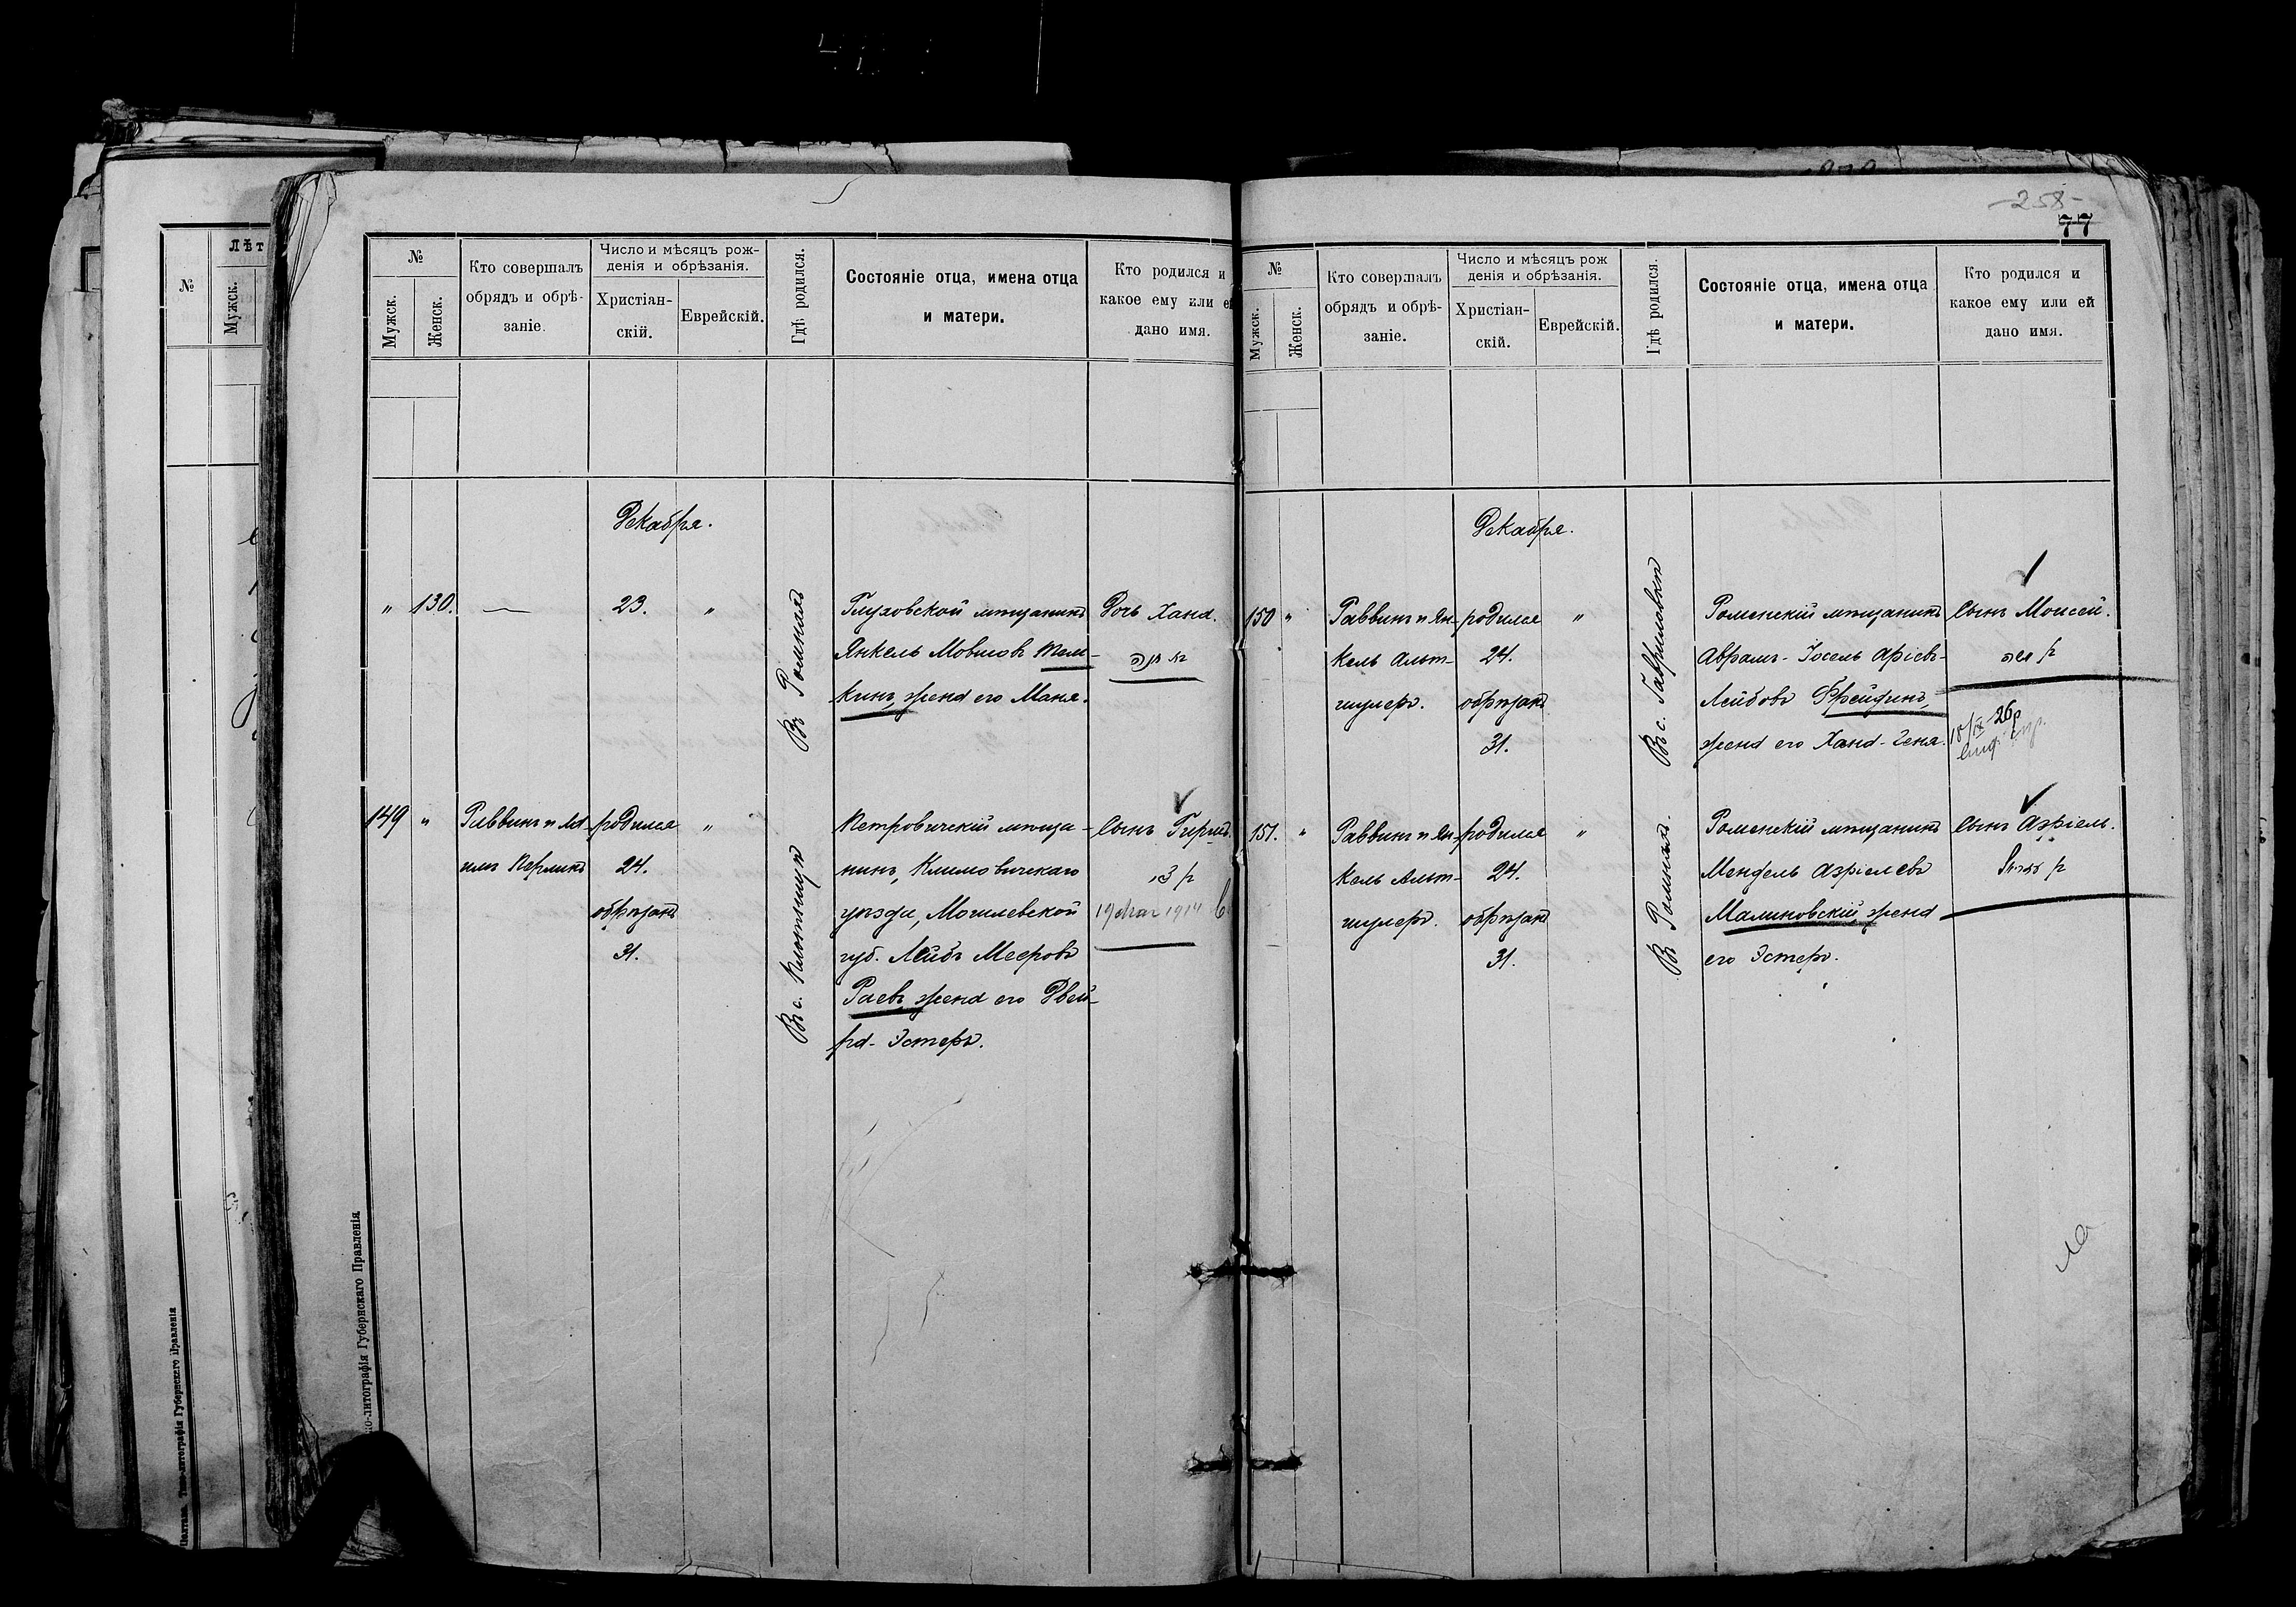 258
77
№
Лѣт
Мужск.
№
Мужск.
Женск.
Кто совершалъ
обрядъ и обрѣ-
заніе.
Число и мѣсяцъ рож-
денія и обрѣзанія.
Христіан-
скій.
Еврейскій.
Гдѣ родился.
Состояніе отца, имена отца
и матери.
Кто родился и
какое ему или ей
дано имя.
Декабря.
" 130.
—
23.
"
Въ Ромнахъ
Глуховской мѣщанинъ
Янкель Мовшовъ
кинъ, жена его Маня.
Дочь Хана.
חנה
149 "
Раввинъ и
Перлинъ
родился
24.
обрѣзанъ
31.
"
Въ с.
Петровичскій мѣща-
нинъ, Климовичскаго
уѣзда, Могилевской
губ. Лейбъ Мееровъ
Раевъ, жена его Двей-
ра-Эстеръ.
Сынъ Гиршъ.
1914
№
Мужск.
Женск.
Кто совершалъ
обрядъ и обрѣ-
заніе.
Число и мѣсяцъ рож
денія и обрѣзанія.
Христіан-
скій.
Еврейскій.
Гдѣ родился.
Состояніе отца, имена отца
и матери.
Кто родился и
какое ему или ей
дано имя.
Декабря.
150 "
Раввинъ и Ян-
кель Альт-
шулеръ.
родился
24.
обрѣзанъ
31.
"
Въ с. Гавриловкѣ
Роменскій мѣщанинъ
Абрамъ-Іосель Аріевъ-
Лейбовъ Фрейдинъ,
жена его Хана-Геня.
Сынъ Моисей.
משה
18/IX 26
151. "
Раввинъ и Ян-
кель Альт-
шулеръ.
родился
24.
обрѣзанъ
31.
"
Въ Ромнахъ.
Роменскій мѣщанинъ
Мендель Азріелевъ
Малиновскій, жена
его Эстеръ.
Сынъ Азріель.
עזריאל
Полтава. Типо-литографія Губернскаго Правленія
о-литографія Губернскаго Правленія